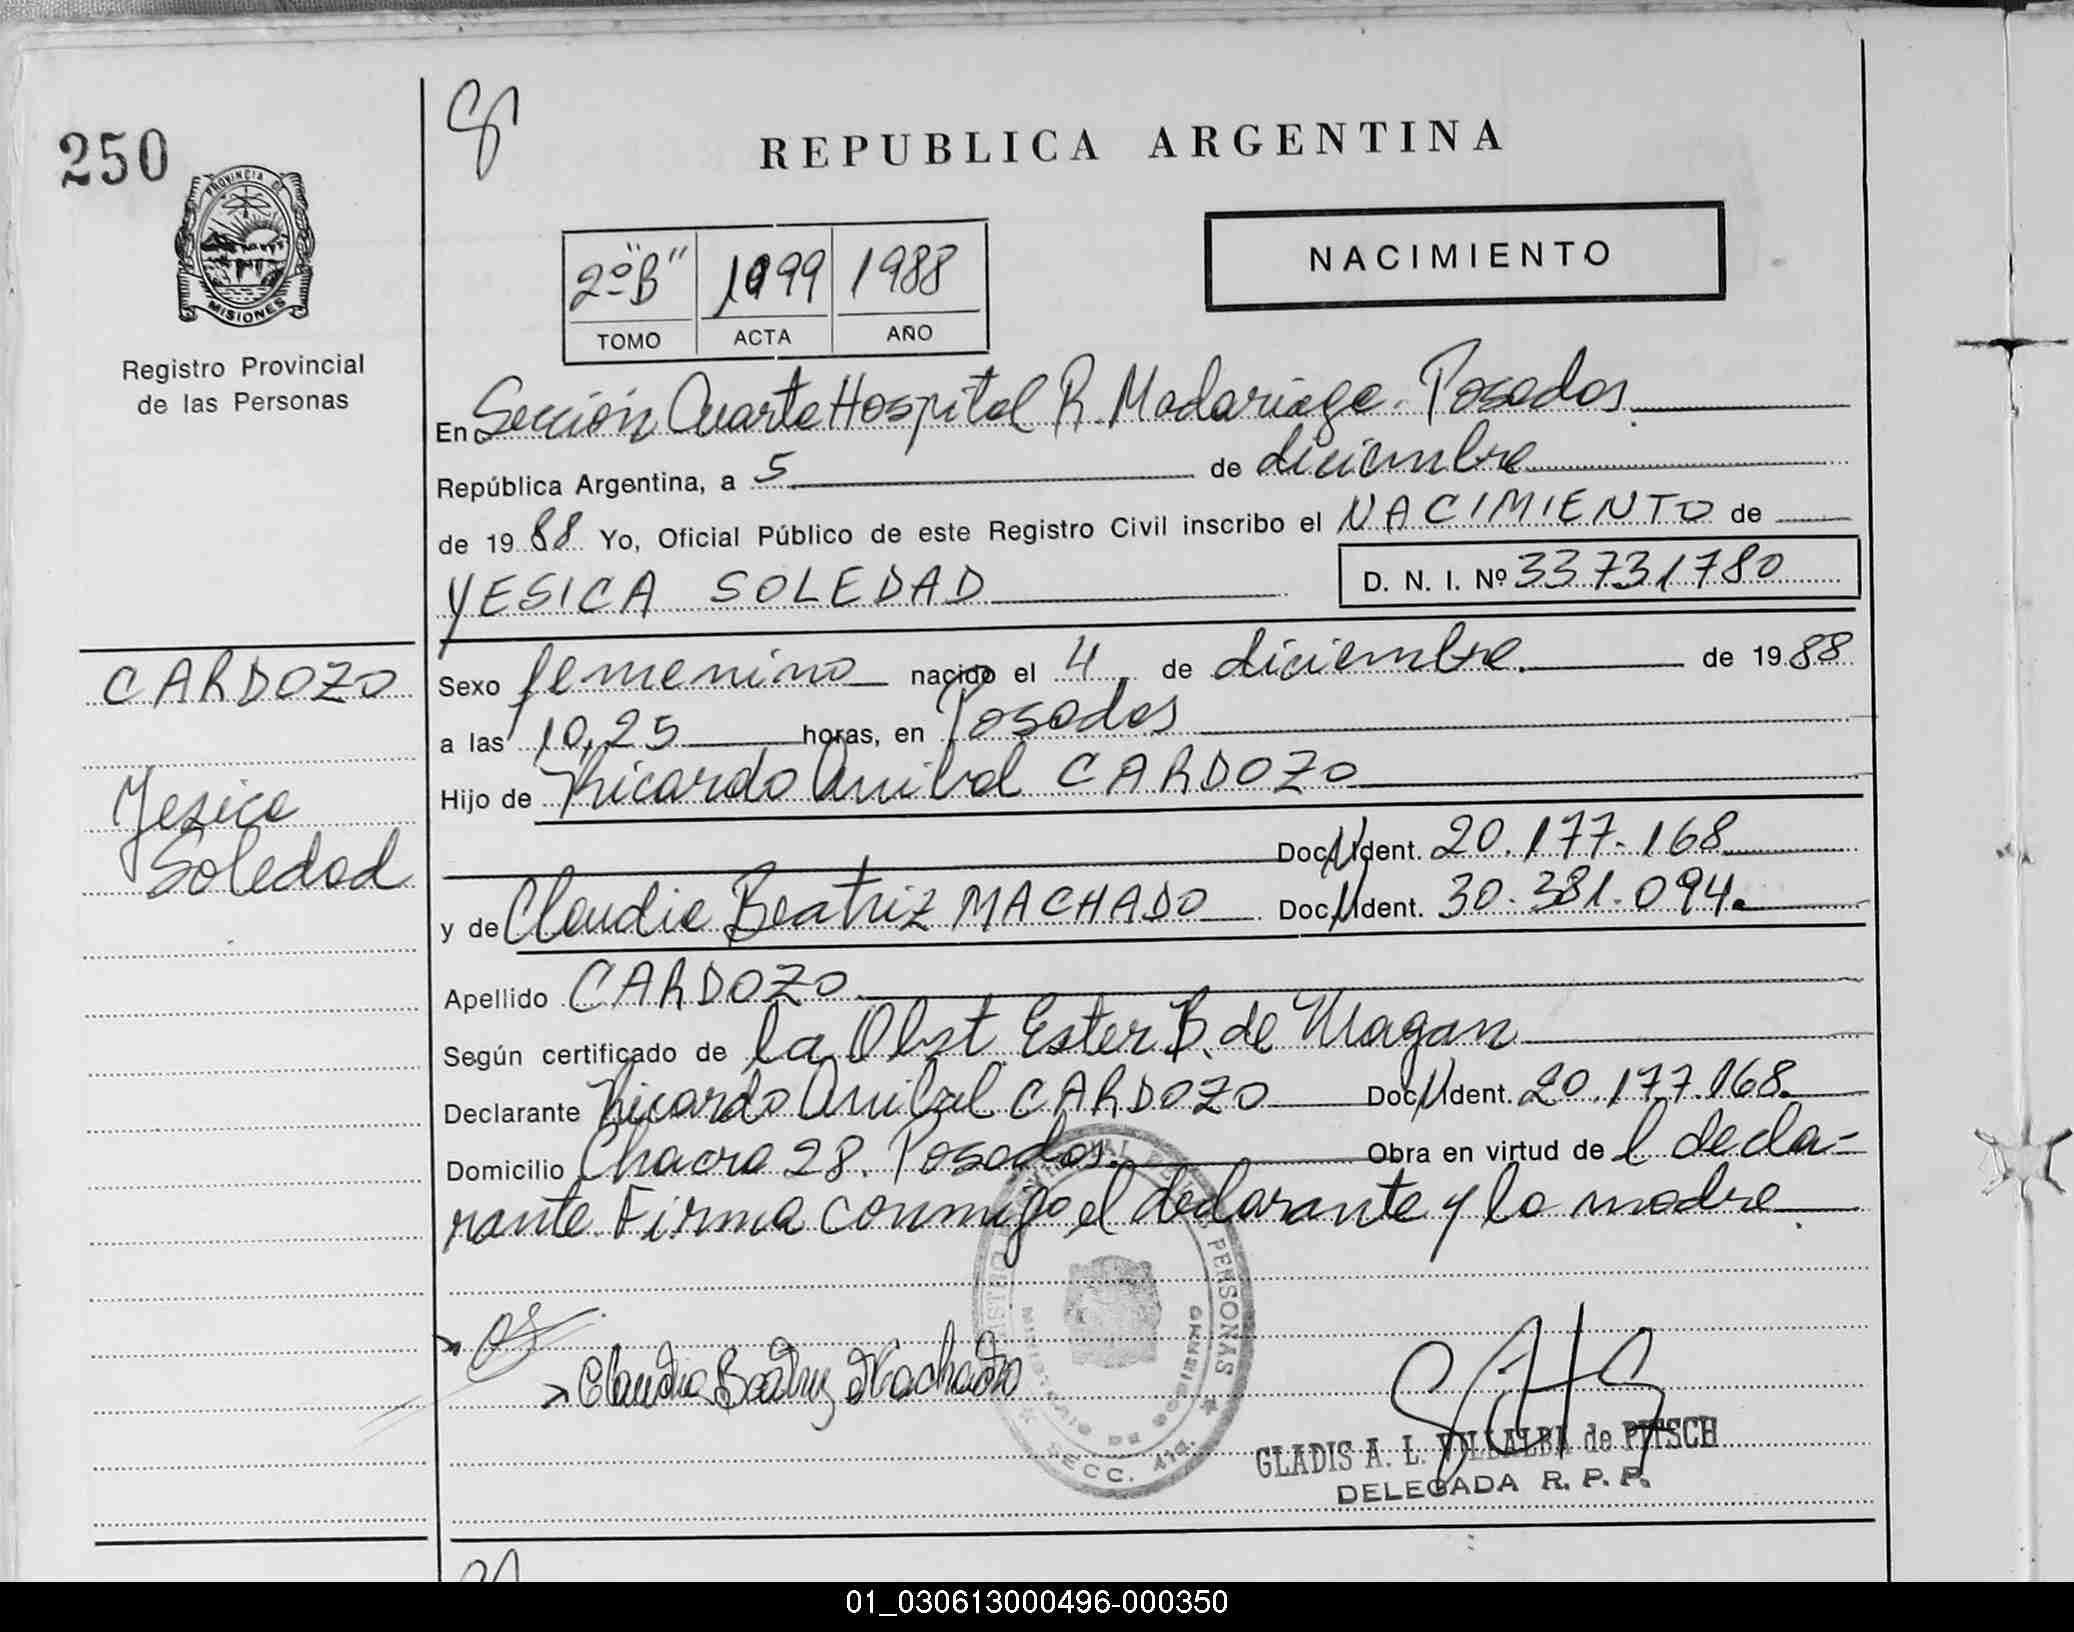 250
PROVINCIA DE
MISIONES
Registro Provincial
de las Personas
REPUBLICA ARGENTINA
2º "B" 1999 1988
TOMO ACTA AÑO
NACIMIENTO
En Sección Cuarta Hospital R. Madariaga. Posadas.
República Argentina, a 5 de diciembre
de 1988 Yo, Oficial Público de este Registro Civil inscribo el NACIMIENTO de
YESICA SOLEDAD D. N. I. Nº 33731780
CARDOZO
Yesica
Soledad
Sexo femenino nacido el 4 de diciembre. de 1988
a las 10,25 horas, en Posadas
Hijo de Ricardo Anibal CARDOZO
Doc. Ident. 20.177.168
y de Claudia Beatriz MACHADO Doc. Ident. 30.381.094.
Apellido CARDOZO
Según certificado de la Obst Ester B. de Magan
Declarante Ricardo Anibal CARDOZO Doc. Ident. 20.177.168.
Domicilio Chacra 28. Posadas. Obra en virtud de l decla=
rante. Firma conmigo el declarante y la madre.
PERSONAS
Claudia Beatriz Machado
GLADIS A. L. VILLALBA de PITSCH
DELEGADA R. P. P.
SECC. 4ta.
01_030613000496-000350